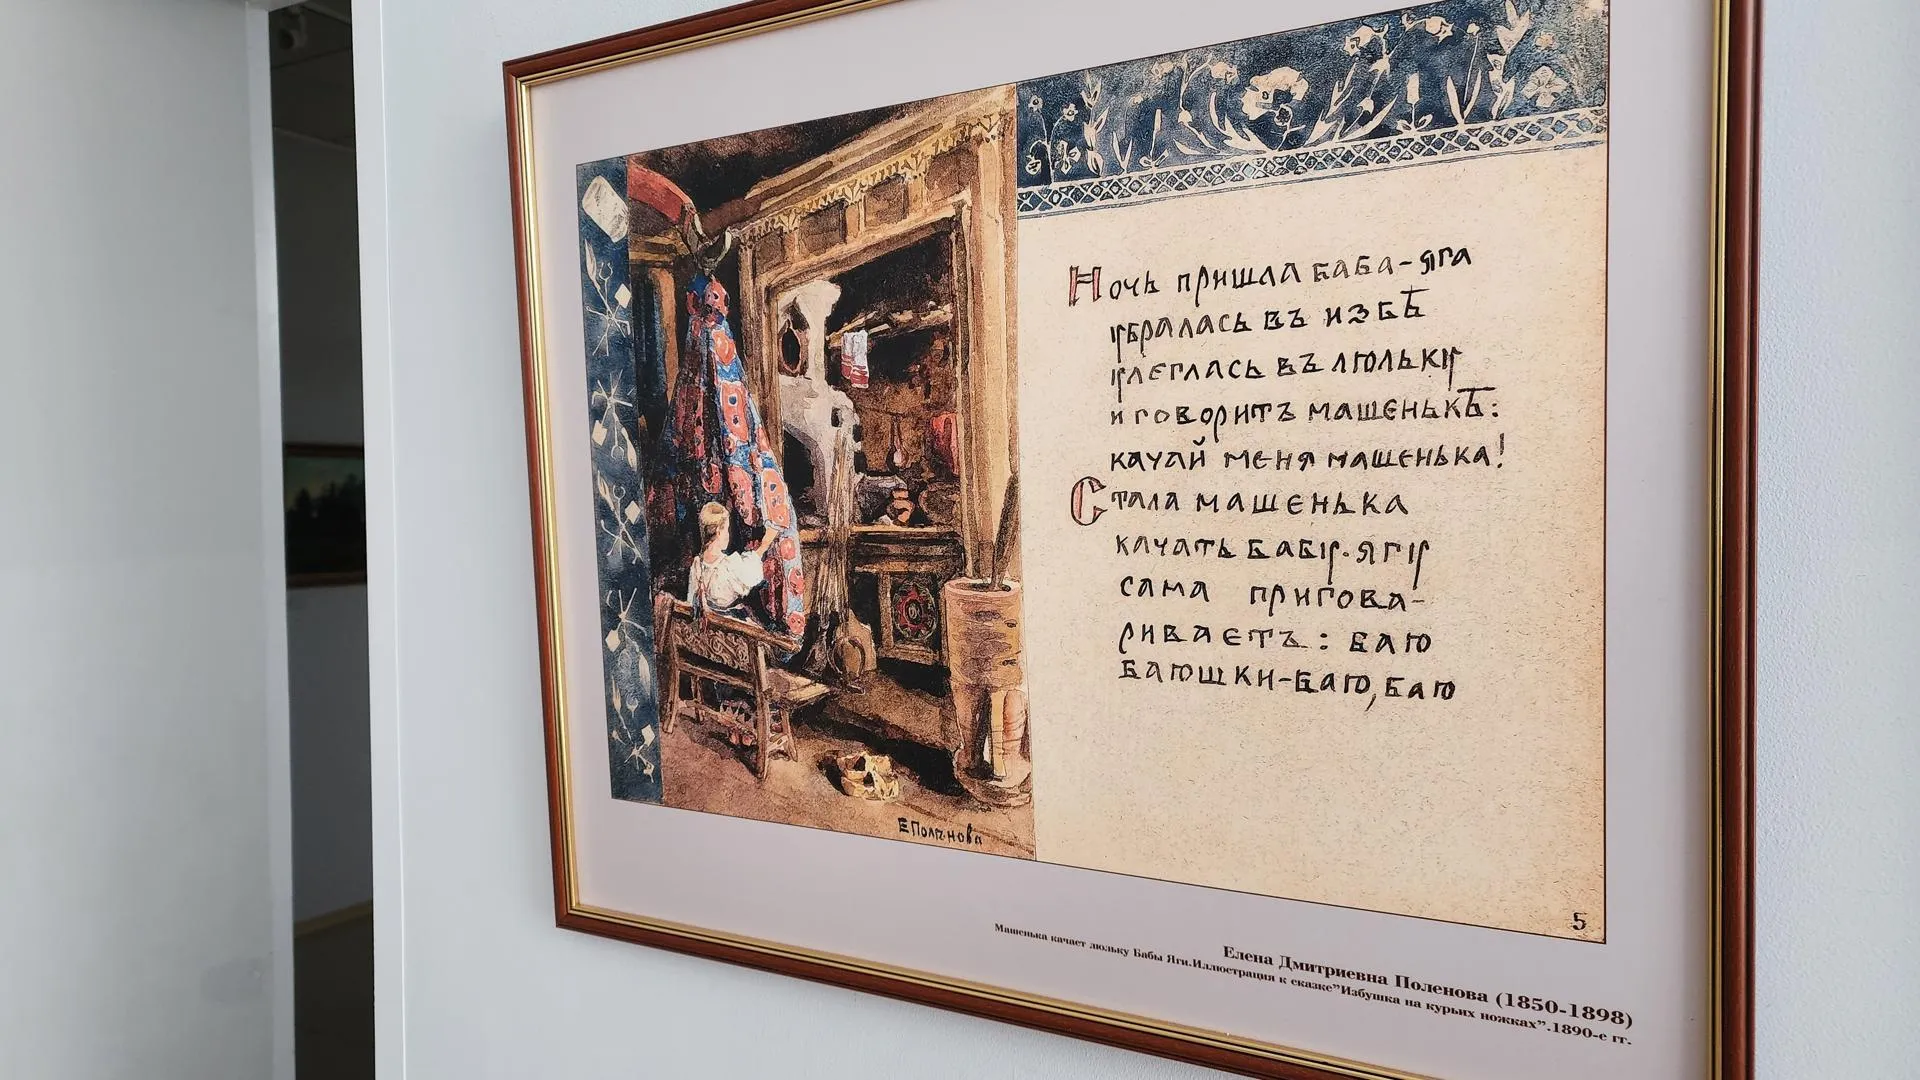 Ночь пришла баба-яга
убралась въ избѣ
улеглась въ люльку
и говоритъ машенькѣ:
качай меня машенька!
Стала машенька
качать бабу-ягу
сама пригова-
риваетъ: баю
баюшки-баю, баю
Е Полѣнова
5
Елена Дмитриевна Поленова (1850-1898)
Машенька качает люльку Бабы Яги.Иллюстрация к сказке"Избушка на курьих ножках".1890-е гг.